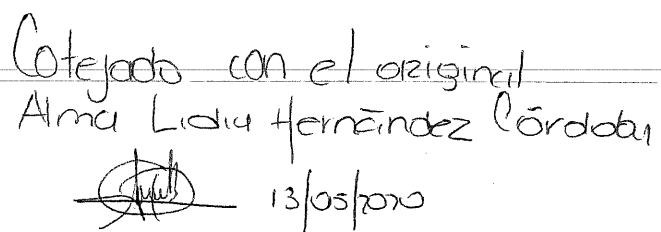 Cotejado con el original
Alma Lidia Hernández Córdoba
13/05/2020